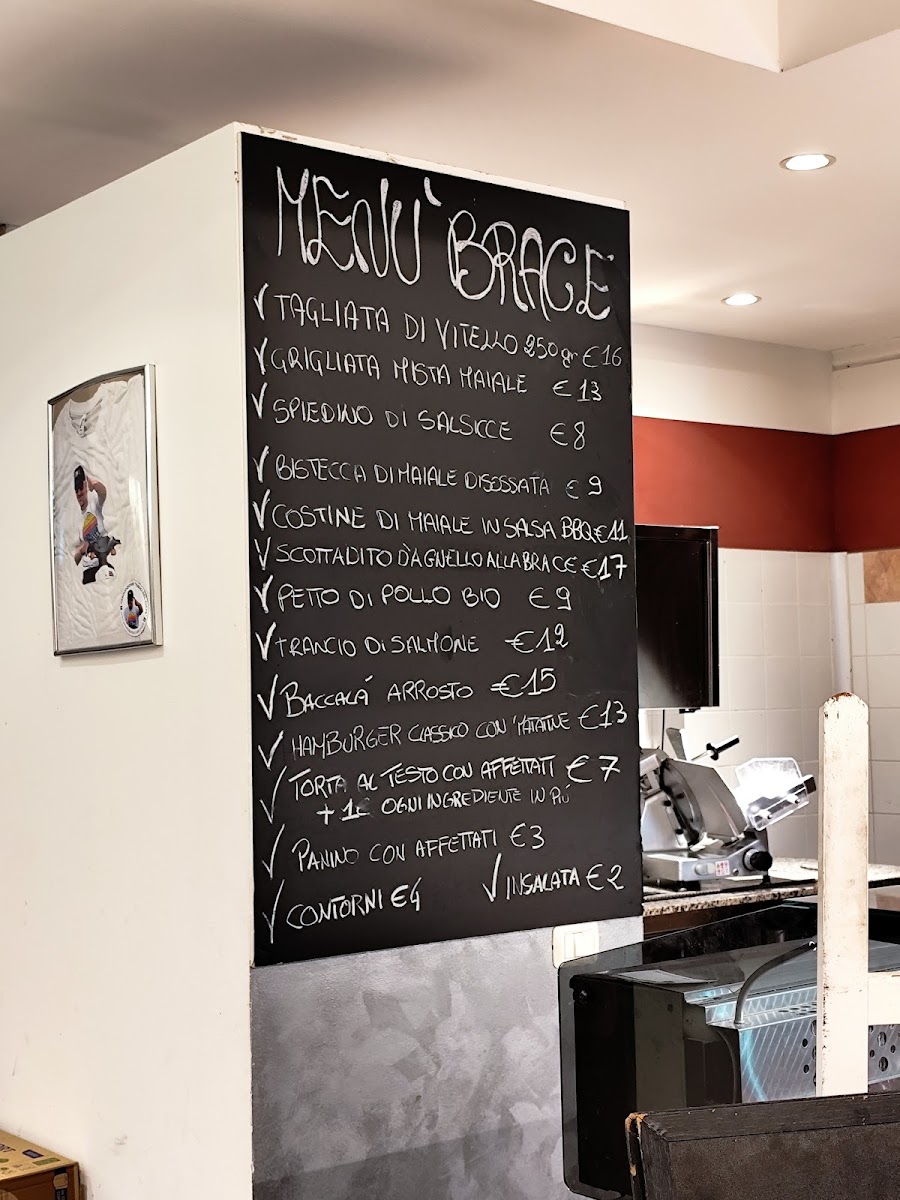 MENÙ BRACE
✓ TAGLIATA DI VITELLO 250 gr € 16
✓ GRIGLIATA MISTA MAIALE € 13
✓ SPIEDINO DI SALSICCE € 8
✓ BISTECCA DI MAIALE DISOSSATA € 9
✓ COSTINE DI MAIALE IN SALSA BBQ € 11
✓ SCOTTADITO D'AGNELLO ALLA BRACE € 17
✓ PETTO DI POLLO BIO € 9
✓ TRANCIO DI SALMONE € 12
✓ BACCALA' ARROSTO € 15
✓ HAMBURGER CLASSICO CON PATATINE € 13
✓ TORTA AL TESTO CON AFFETTATI € 7
+ 1€ OGNI INGREDIENTE IN PIÚ
✓ PANINO CON AFFETTATI € 3
✓ CONTORNI € 4 ✓ INSALATA € 2